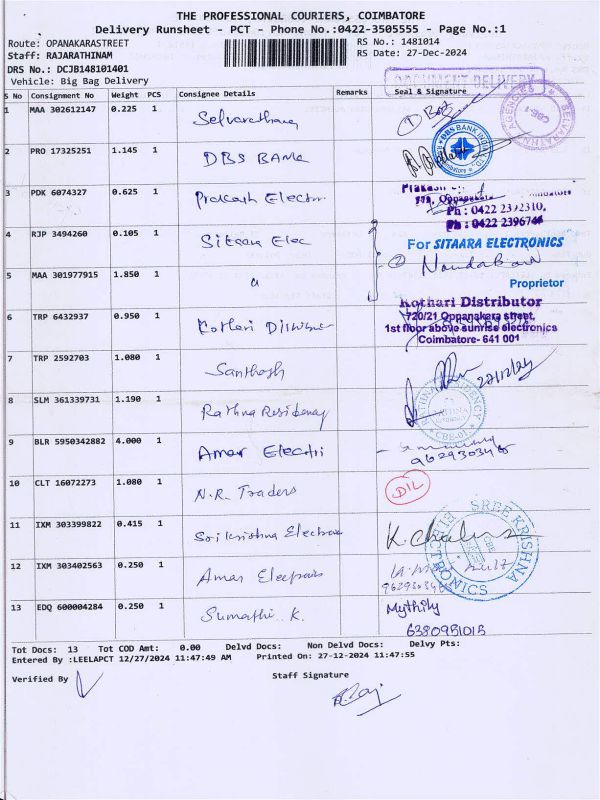 THE PROFESSIONAL COURIERS, COIMBATORE
Delivery Runsheet - PCT - Phone No.:0422-3505555 - Page No.:1
Route: OPANAKARASTREET RS No.: 1481014
Staff: RAJARATHINAM RS Date: 27-Dec-2024
DRS No.: DCJB148101401
Vehicle: Big Bag Delivery
DOCUMENT DELIVERY
S No Consignment No Weight PCS Consignee Details Remarks Seal & Signature
1 MAA 302612147 0.225 1 Selvarathna
SELVARATHNA AGENCIES CBE-1
2 PRO 17325251 1.145 1 DBS BANK
DBS BANK INDIA LTD Coimbatore
3 PDK 6074327 0.625 1 Prakash Electro
Prakash
Oppanakara
Ph : 0422 2392310,
Ph : 0422 2396744
4 RJP 3494260 0.105 1 Sitaara Elec
For SITAARA ELECTRONICS
Proprietor
5 MAA 301977915 1.850 1 "
6 TRP 6432937 0.950 1 Kothari Distributor
Kothari Distributor
720/21 Oppanakara street,
1st floor above sunrise electronics
Coimbatore- 641 001
7 TRP 2592703 1.080 1 Santhosh
27/12/24
8 SLM 361339731 1.190 1 Rathna Residency
RATHNA RESIDENCY CBE-01
9 BLR 5950342882 4.000 1 Amar Electri
10 CLT 16072273 1.080 1 N.R. Traders D/L
11 IXM 303399822 0.415 1 Sri Krishna Electron
SREE KRISHNA ELECTRONICS CBE
12 IXM 303402563 0.250 1 Amar
13 EDQ 600004284 0.250 1 Sumathi. K. Mythily
Tot Docs: 13 Tot COD Amt: 0.00 Delvd Docs: Non Delvd Docs: Delvy Pts:
Entered By :LEELAPCT 12/27/2024 11:47:49 AM Printed On: 27-12-2024 11:47:55
Verified By Staff Signature